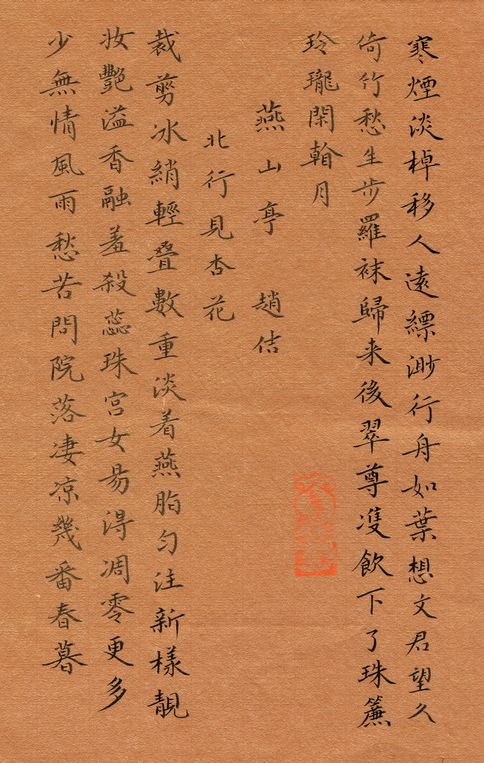 寒煙淡棹移人遠縹渺行舟如葉想文君望久
倚竹愁生步羅袜歸来後翠尊㕠飲下了珠簾
玲瓏閑看月
燕山亭 趙佶
北行見杏花
裁剪冰綃輕叠數重淡着燕脂匀注新樣靚
妝艷溢香融羞殺蕊珠宮女易得凋零更多
少無情風雨愁苦問院落凄凉幾番春暮